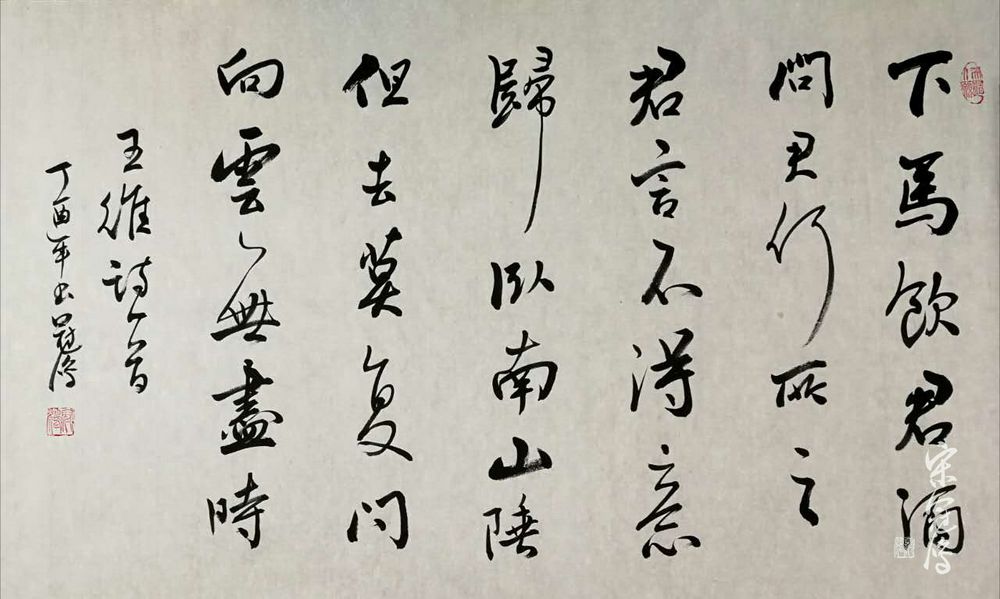 下馬飲君酒
問君何所之
君言不得意
歸臥南山陲
但去莫复問
向雲〻無盡時
王維詩一首
丁酉年書冠
宋冠